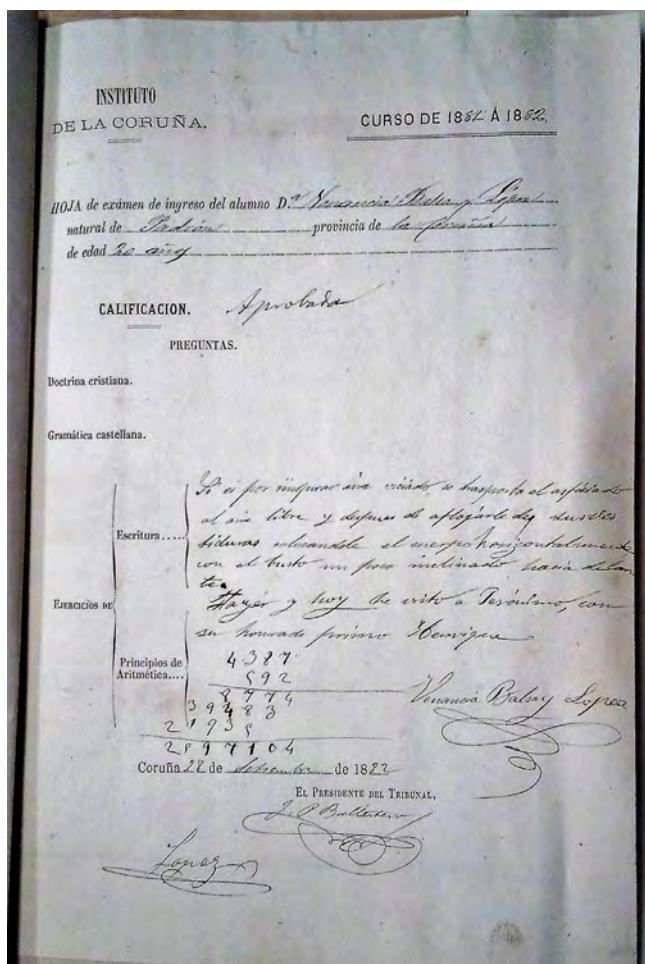 INSTITUTO
DE LA CORUÑA.
CURSO DE 1881 Á 1882.
HOJA de exámen de ingreso del alumno D.ª Venancia Balsa y López
natural de Padrón provincia de la Coruña
de edad 20 años
CALIFICACION. Aprobada
PREGUNTAS.
Doctrina cristiana.
Gramática castellana.
EJERCICIOS DE
Escritura.....
Si es por inspirar aire viciado, se trasporta el asfixiado
al aire libre y despues de aflojarle
colocandole el cuerpo horizontalmente
con el busto un poco inclinado hacia delan
te.
Hayér y hoy he visto a Jerónimo, con
su honrado primo Henrique
Principios de
Aritmética....
4387
692
8774
39483
Venancia Balsa y Lopez
Coruña de de 1882
EL PRESIDENTE DEL TRIBUNAL,
Lopez